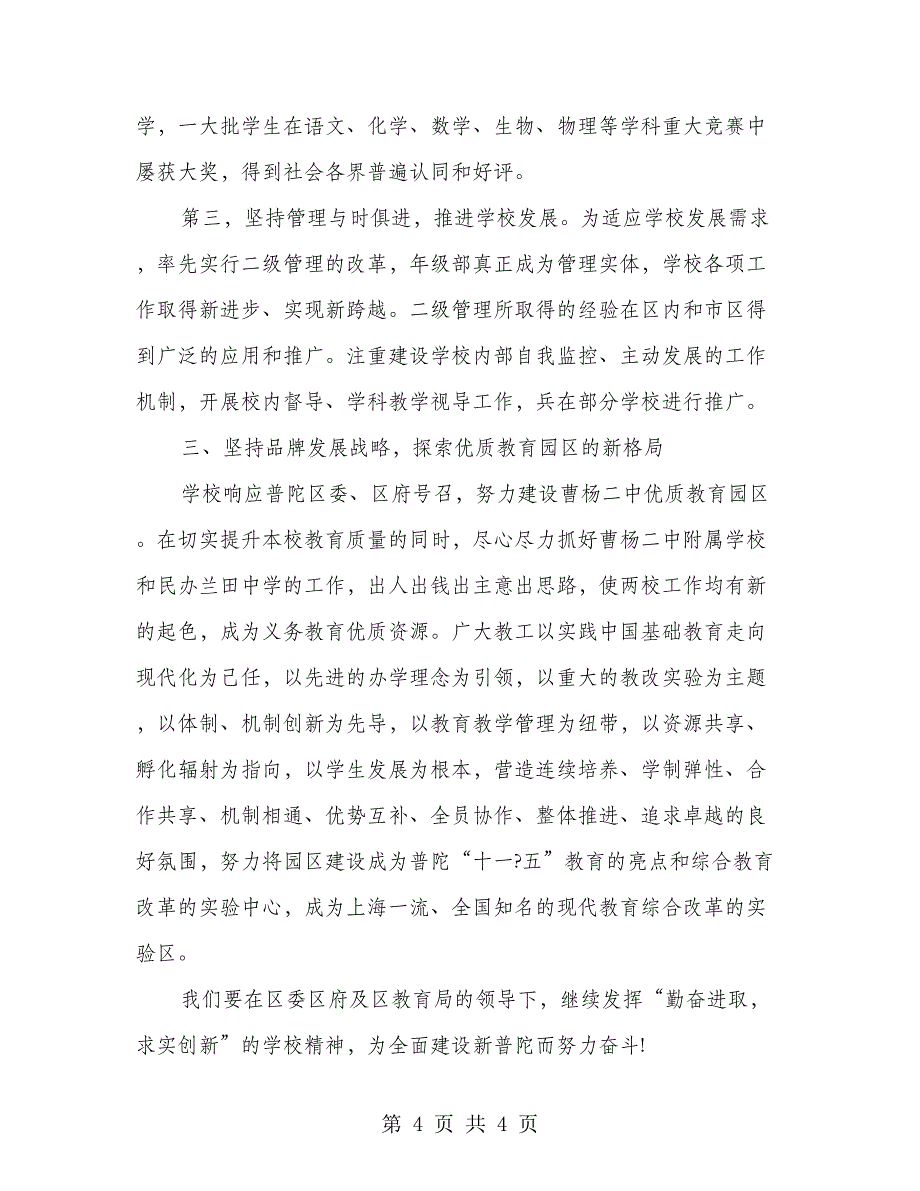 学，一大批学生在语文、化学、数学、生物、物理等学科重大竞赛中
屡获大奖，得到社会各界普遍认同和好评。
第三，坚持管理与时俱进，推进学校发展。为适应学校发展需求
，率先实行二级管理的改革，年级部真正成为管理实体，学校各项工
作取得新进步、实现新跨越。二级管理所取得的经验在区内和市区得
到广泛的应用和推广。注重建设学校内部自我监控、主动发展的工作
机制，开展校内督导、学科教学视导工作，兵在部分学校进行推广。
三、坚持品牌发展战略，探索优质教育园区的新格局
学校响应普陀区委、区府号召，努力建设曹杨二中优质教育园区
。在切实提升本校教育质量的同时，尽心尽力抓好曹杨二中附属学校
和民办兰田中学的工作，出人出钱出主意出思路，使两校工作均有新
的起色，成为义务教育优质资源。广大教工以实践中国基础教育走向
现代化为己任，以先进的办学理念为引领，以重大的教改实验为主题
，以体制、机制创新为先导，以教育教学管理为纽带，以资源共享、
孵化辐射为指向，以学生发展为根本，营造连续培养、学制弹性、合
作共享、机制相通、优势互补、全员协作、整体推进、追求卓越的良
好氛围，努力将园区建设成为普陀“十一?五”教育的亮点和综合教育
改革的实验中心，成为上海一流、全国知名的现代教育综合改革的实
验区。
我们要在区委区府及区教育局的领导下，继续发挥“勤奋进取，
求实创新”的学校精神，为全面建设新普陀而努力奋斗!
第 4 页 共 4 页